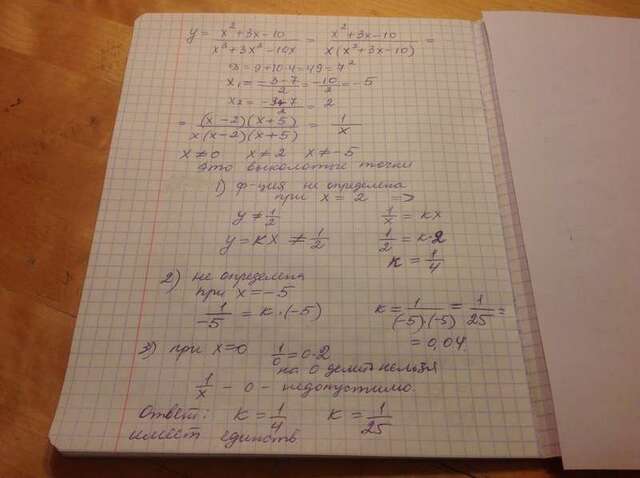 y = (x² + 3x - 10)/(x³ + 3x² - 10x) = (x² + 3x - 10)/(x(x² + 3x - 10)) =
D = 9 + 10·4 = 49 = 7²
x₁ = (-3 - 7)/2 = -10/2 = -5
x₂ = (-3+7)/2 = 2
= (x - 2)(x + 5)/(x(x - 2)(x + 5)) = 1/x
x ≠ 0 x ≠ 2 x ≠ -5
это выколотые точки
1) ф-ция не определена
при x = 2 =>
y ≠ 1/2 1/x = kx
y = kx ≠ 1/2 1/2 = k·2
k = 1/4
2) не определена
при x = -5
1/-5 = k·(-5) k = 1/((-5)·(-5)) = 1/25 =
= 0,04
3) при x=0 1/0 = 0·2
на 0 делить нельзя
1/x - 0 - недопустимо.
Ответ: k = 1/4 k = 1/25
имеет единств